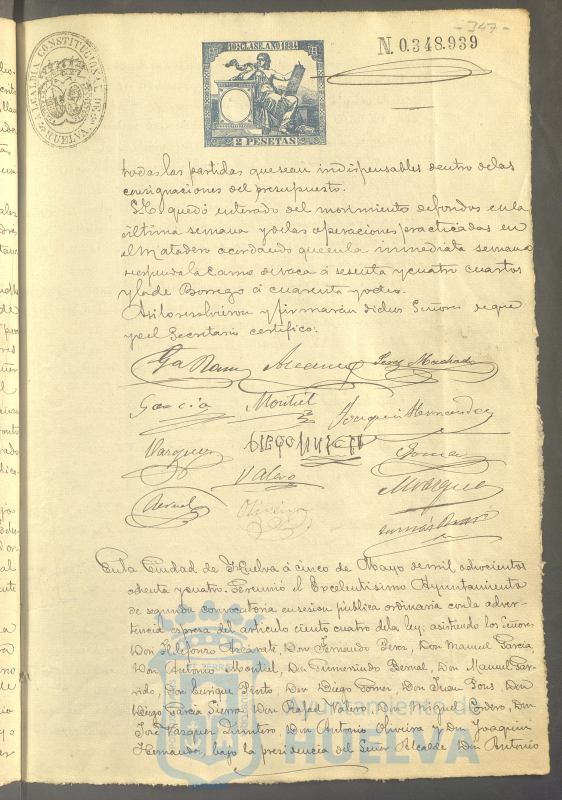 -347-
N. 0.348.939
10ª CLASE. AÑO 1884
2 PESETAS
ALCALDIA CONSTITUCIONAL DE HUELVA
todas las partidas que sean indispensables dentro de las
consignaciones del presupuesto.
S.E. quedó enterado del movimiento de fondos en la
última semana y de las operaciones practicadas en
el Matadero acordando que en la inmediata semana
se espenda la carne de vaca á sesenta y cuatro cuartos
y la de Borrego á cuarenta y ocho.
Asi lo resolvieron y firmarán dichos Señores de que
yo el Secretario certifico.
Garcia Montiel Joaquin Hernandez
Vazquez
Valero
Bernal Oliveira Mvazquez
En la Ciudad de Huelva á cinco de Mayo de mil ochocientos
ochenta y cuatro. Se reunió el Excelentisimo Ayuntamiento
de segunda convocatoria en sesion publica ordinaria con la adver-
tencia espresa del articulo ciento cuatro de la ley; asistiendo los señores
Don Ildefonso Don Fernando Perez, Don Manuel Garcia,
Don Antonio Montiel, Don Gumersindo Bernal, Don Manuel Gar-
rido, Don Enrique Pinto, Don Diego Gomez, Don Juan Pons, Don
Diego Garcia Sierra, Don Rafael Valero, Don Miguel Cordero, Don
José Vazquez Don Antonio Oliveira y Don Joaquin
Hernandez, bajo la presidencia del Señor Alcalde Don Antonio
Ayuntamiento de
HUELVA